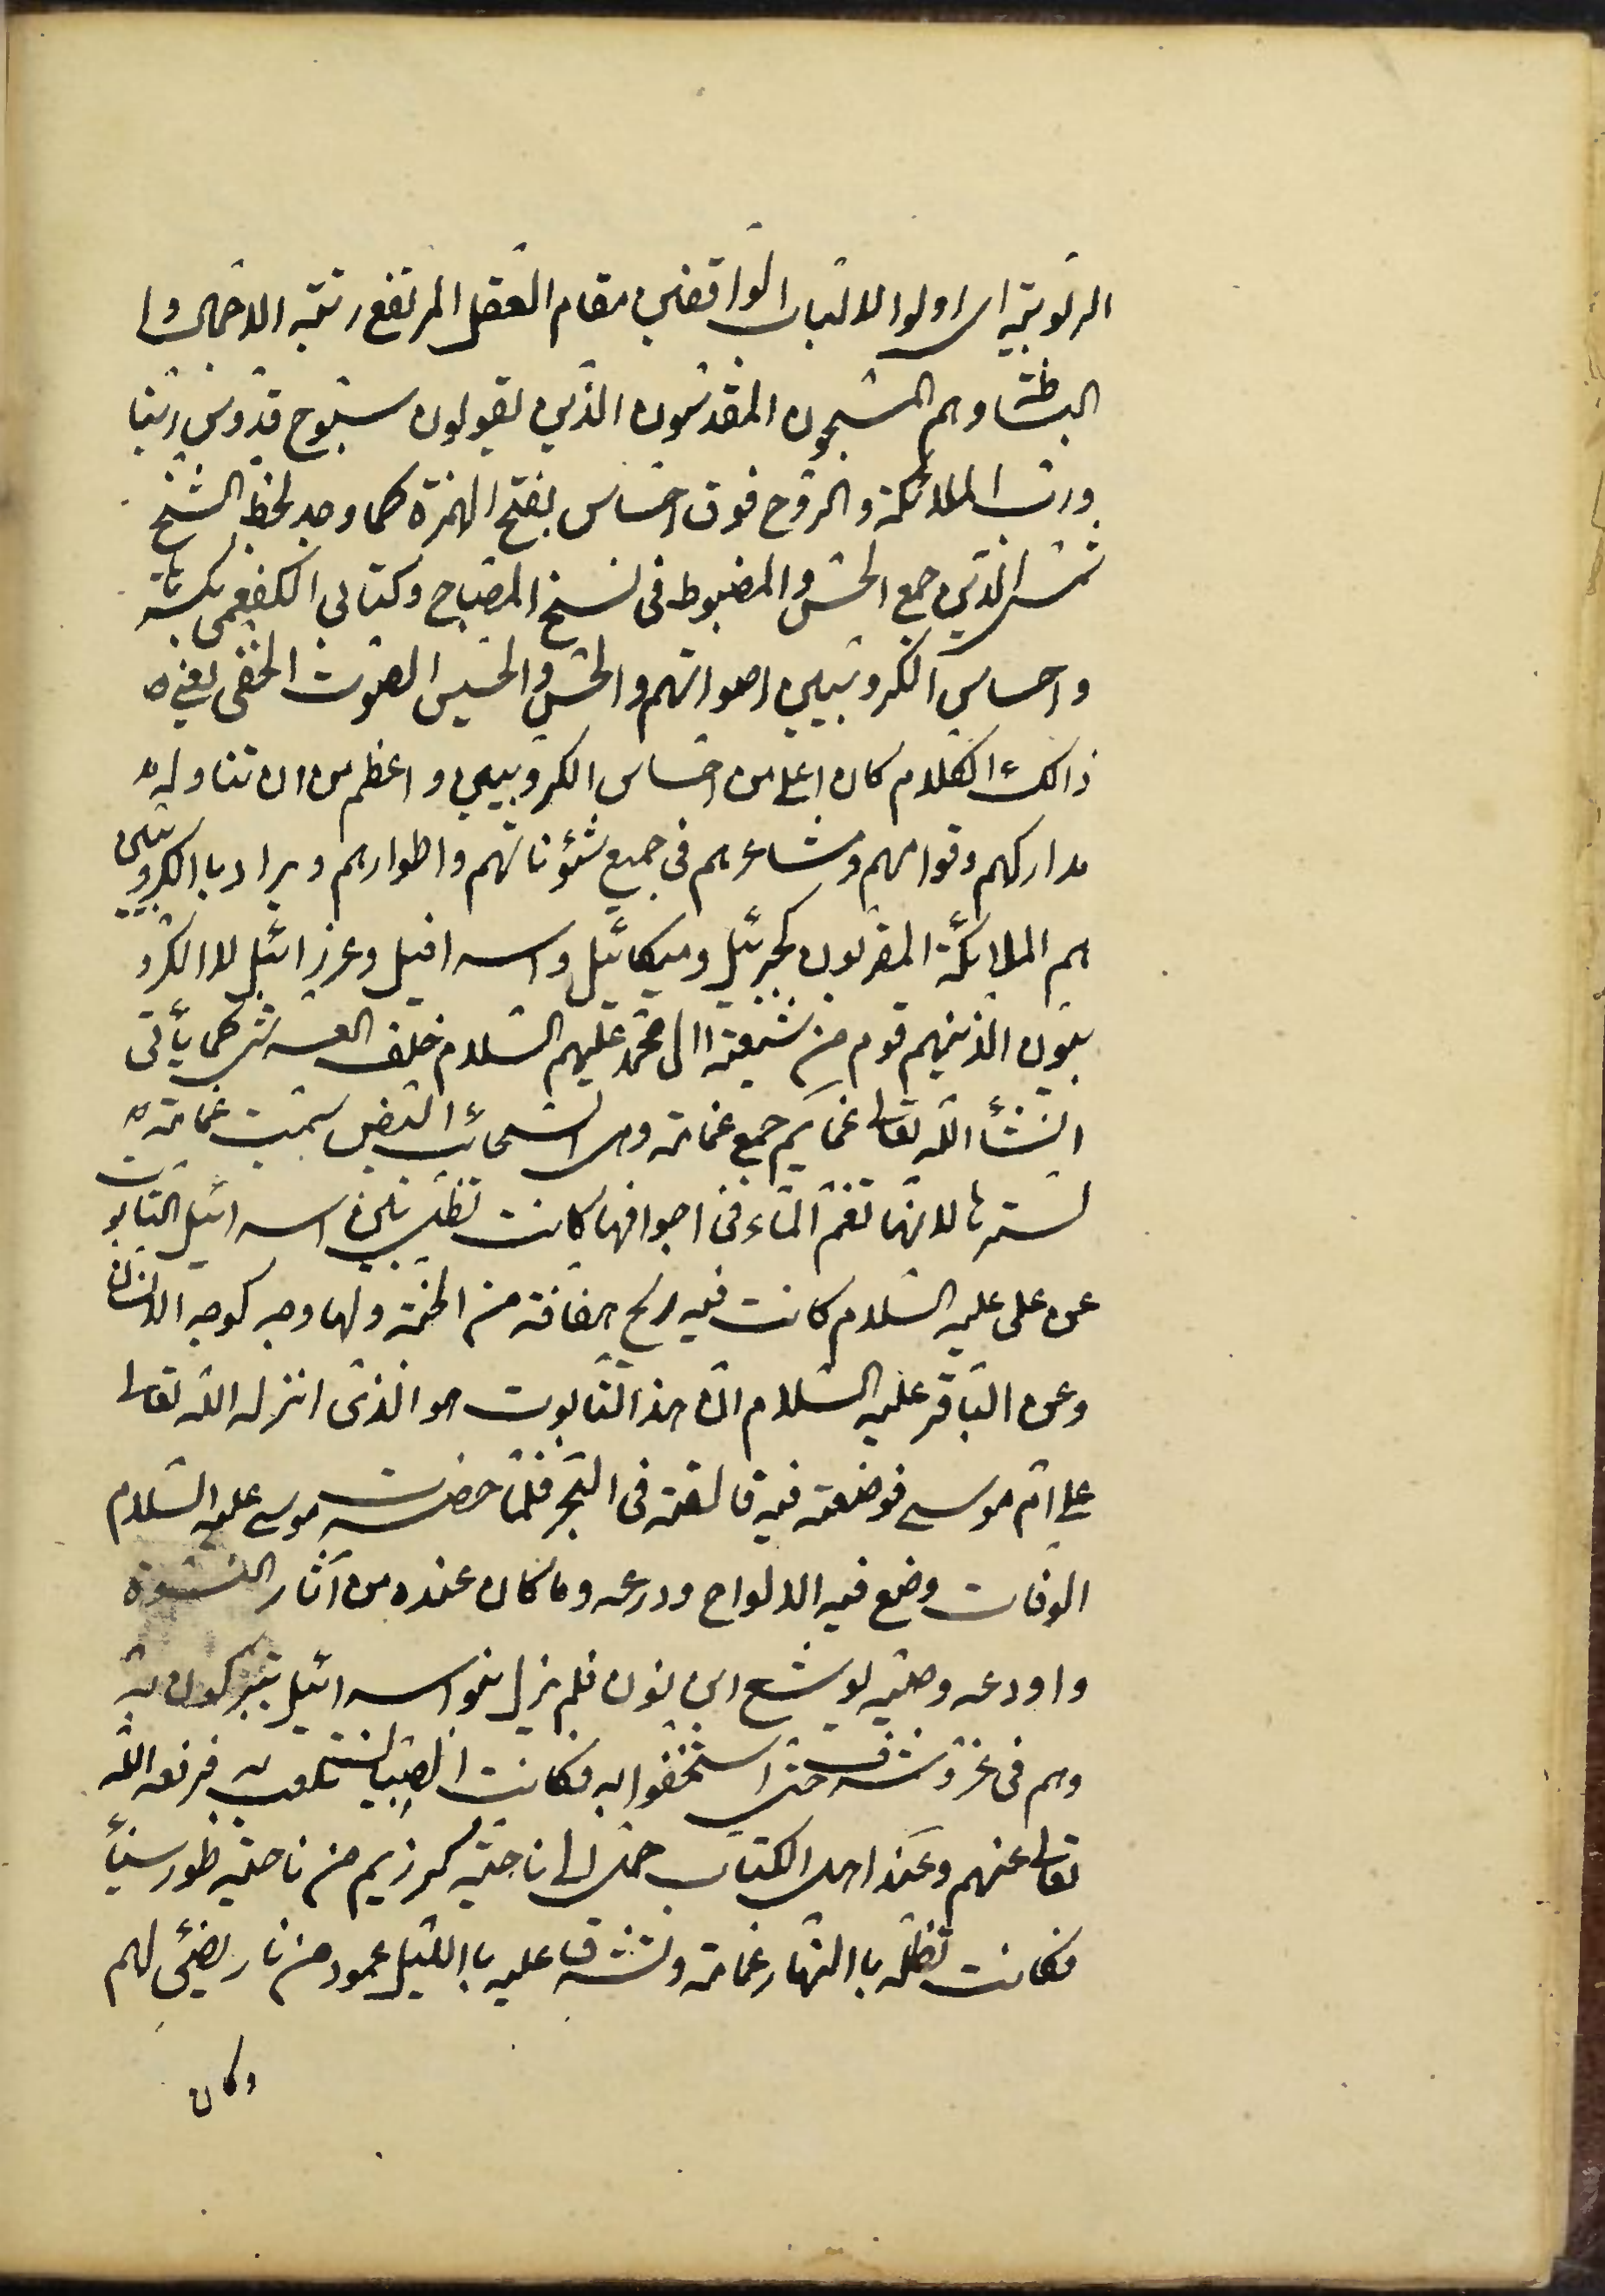 الربوبية اى اولوا الالباب الواقفين مقام العقل المرتفع رتبته الاجمال وا
البساطة وهم المسبحون المقدسون الذين يقولون سبوح قدوس ربنا
ورب الملائكة والروح فوق احساس بفتح الهمزة كما وجد بخط الشيخ
شمس الدين جمع الحس والمضبوط فى نسخ المصباح وكتابى الكفعمى بكسرتها
واحساس الكروبيين اصواتهم والحس والحسيس الصوت الخفى يعنى
ذالك الكلام كان اعلى من احساس الكروبيين واعظم من ان تناوله
مداركهم وقواهم ومشاعرهم فى جميع شئوناتهم واطوارهم ويراد باالكروبيين
هم الملائكة المقربون كجبرئيل وميكائيل واسرافيل وعزرائيل لا الكرو
بيون الذينهم قوم من شيعة اال محمد عليهم السلام خلف العرش كما يأتى
انشأ الله تعالى غمايم جمع غمامة وهى السحائب البيض سميت غمامة
لسترها لانها تغم الماء فى اجوافها كانت تظل بنى اسرائيل التابوت
عن على عليه السلام كانت فيه ريح هفافة من الجنة ولها وجه كوجه الانسان
وعن الباقر عليه السلام ان هذا التابوت هو الذى انزله الله تعالى
على ام موسى فوضعته فيه فالقته فى البحر فلما حضرت موسى عليه السلام
الوفات وضع فيه الالواح ودرعه وما كان عنده من آثار النبوة
واودعه وصيه يوشع ابن نون فلم يزل بنو اسرائيل يتبركون به
وهم فى عز وشرف حتى استخفوا به فكانت الصبيان تلعب به فرفعه الله
تعالى عنهم وعند اهل الكتاب حمل الى ناحية كرزيم من ناحية طور سيناء
فكانت تظله باالنهار غمامة وتشرف عليه باالليل عمود من نار يضئ لهم
وكان